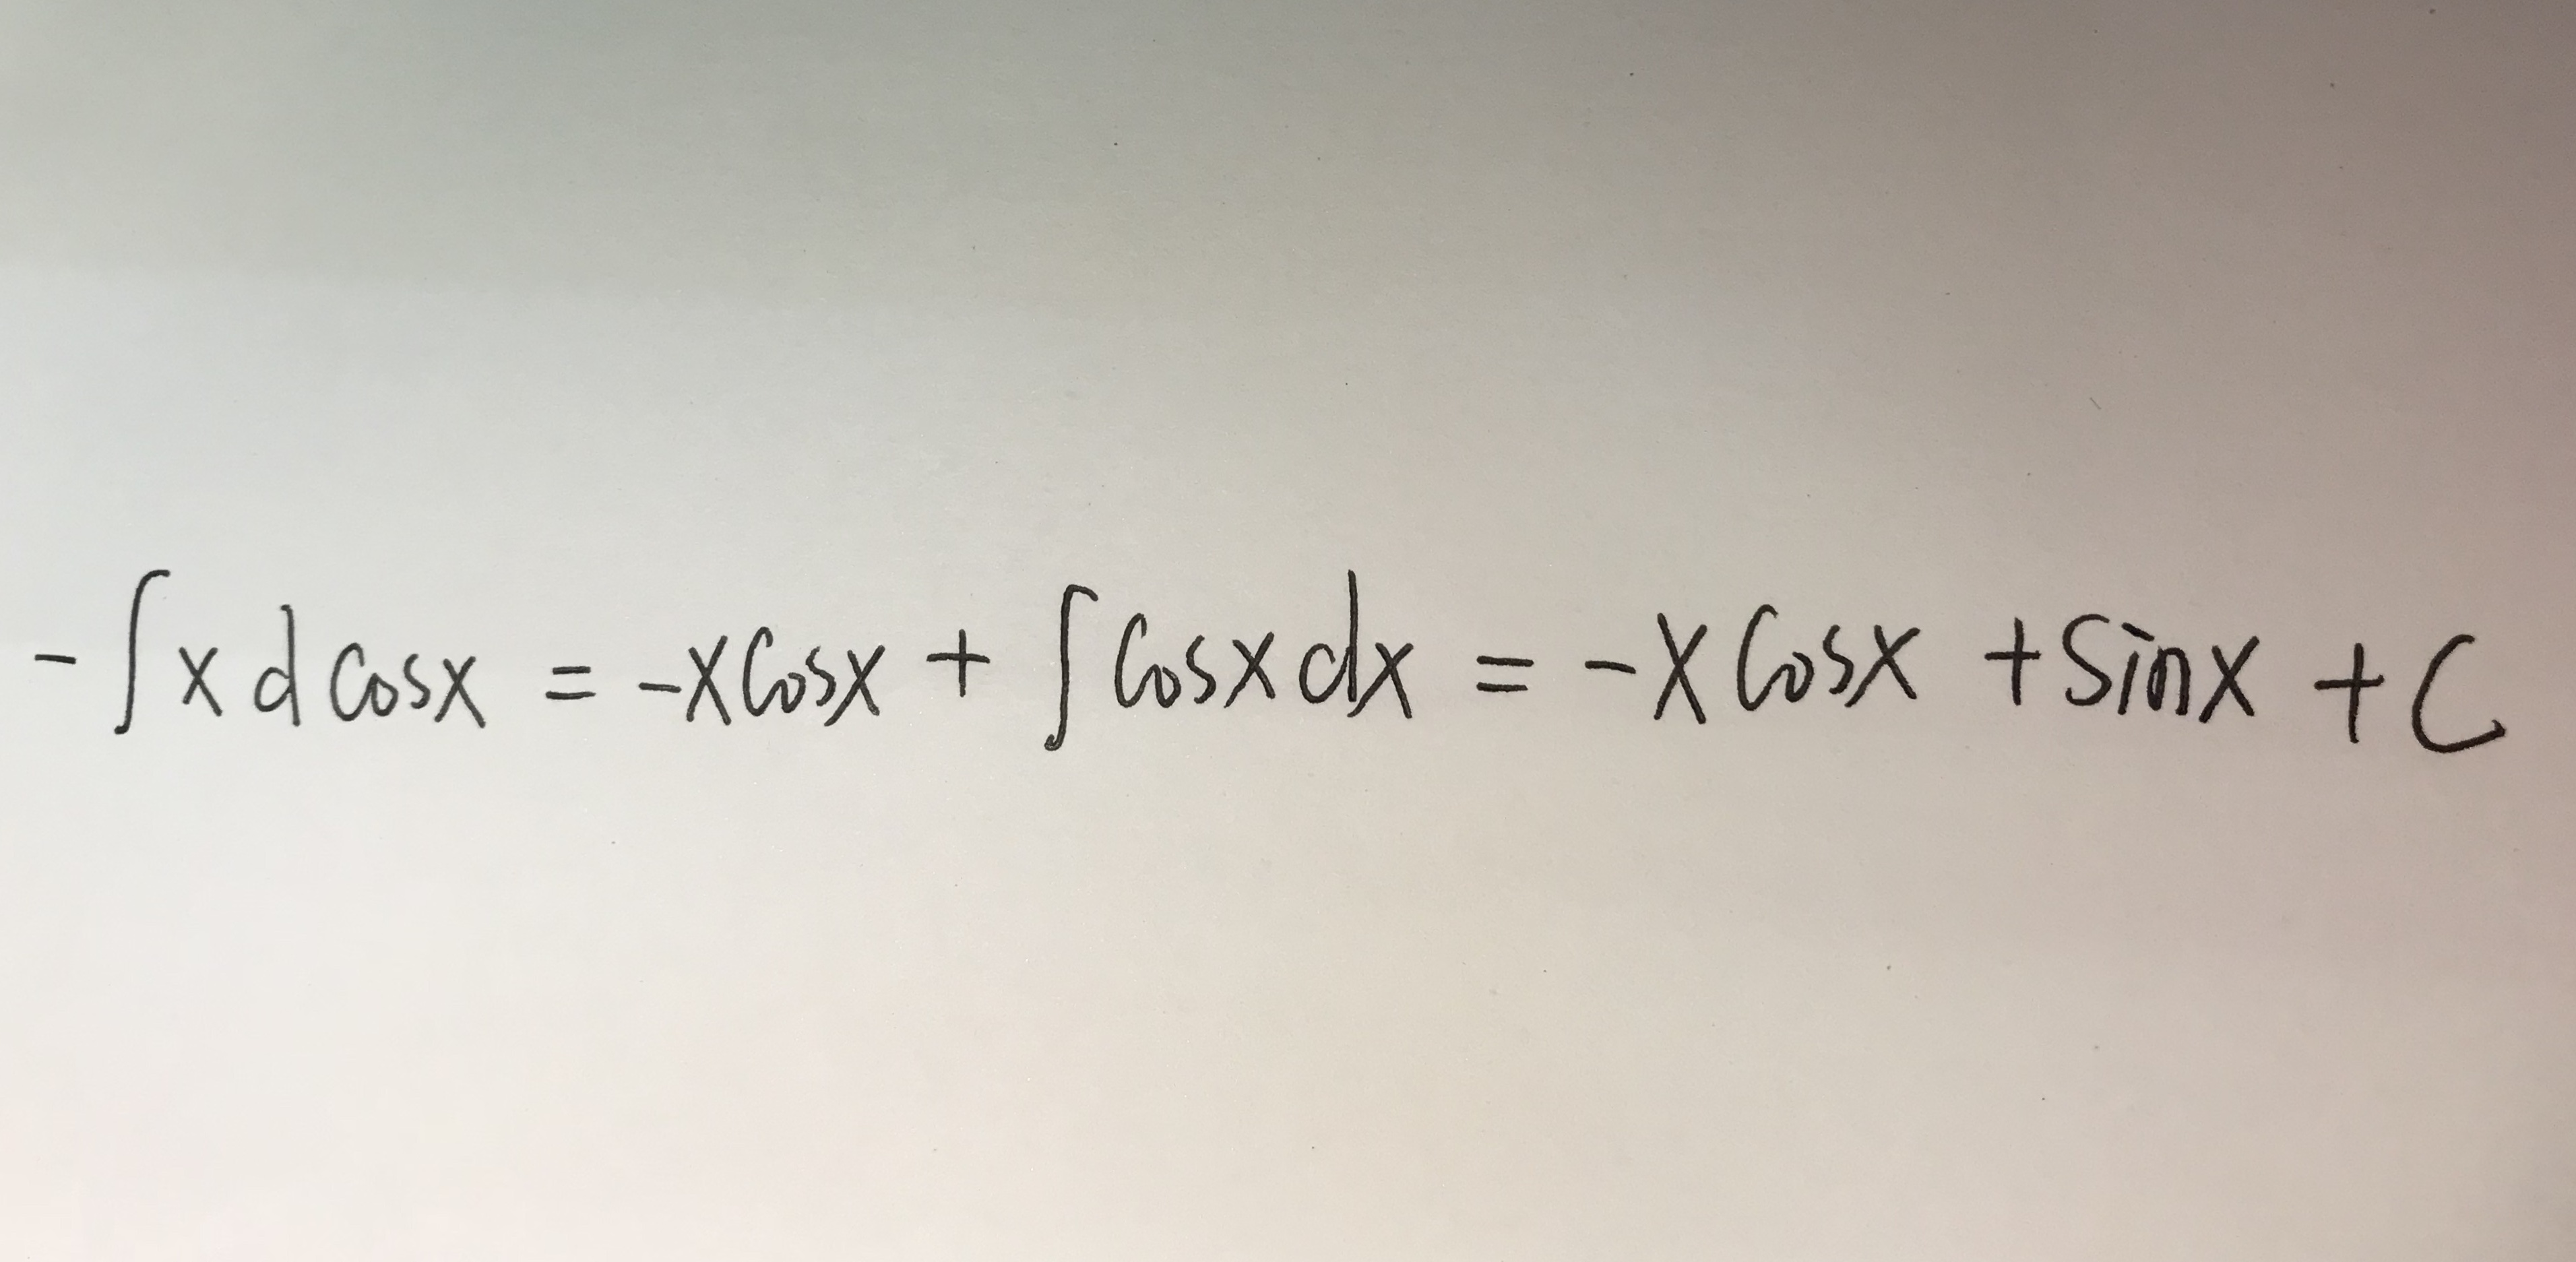 -∫x d cosx = -xcosx + ∫cosx dx = -x cosx + sinx + C